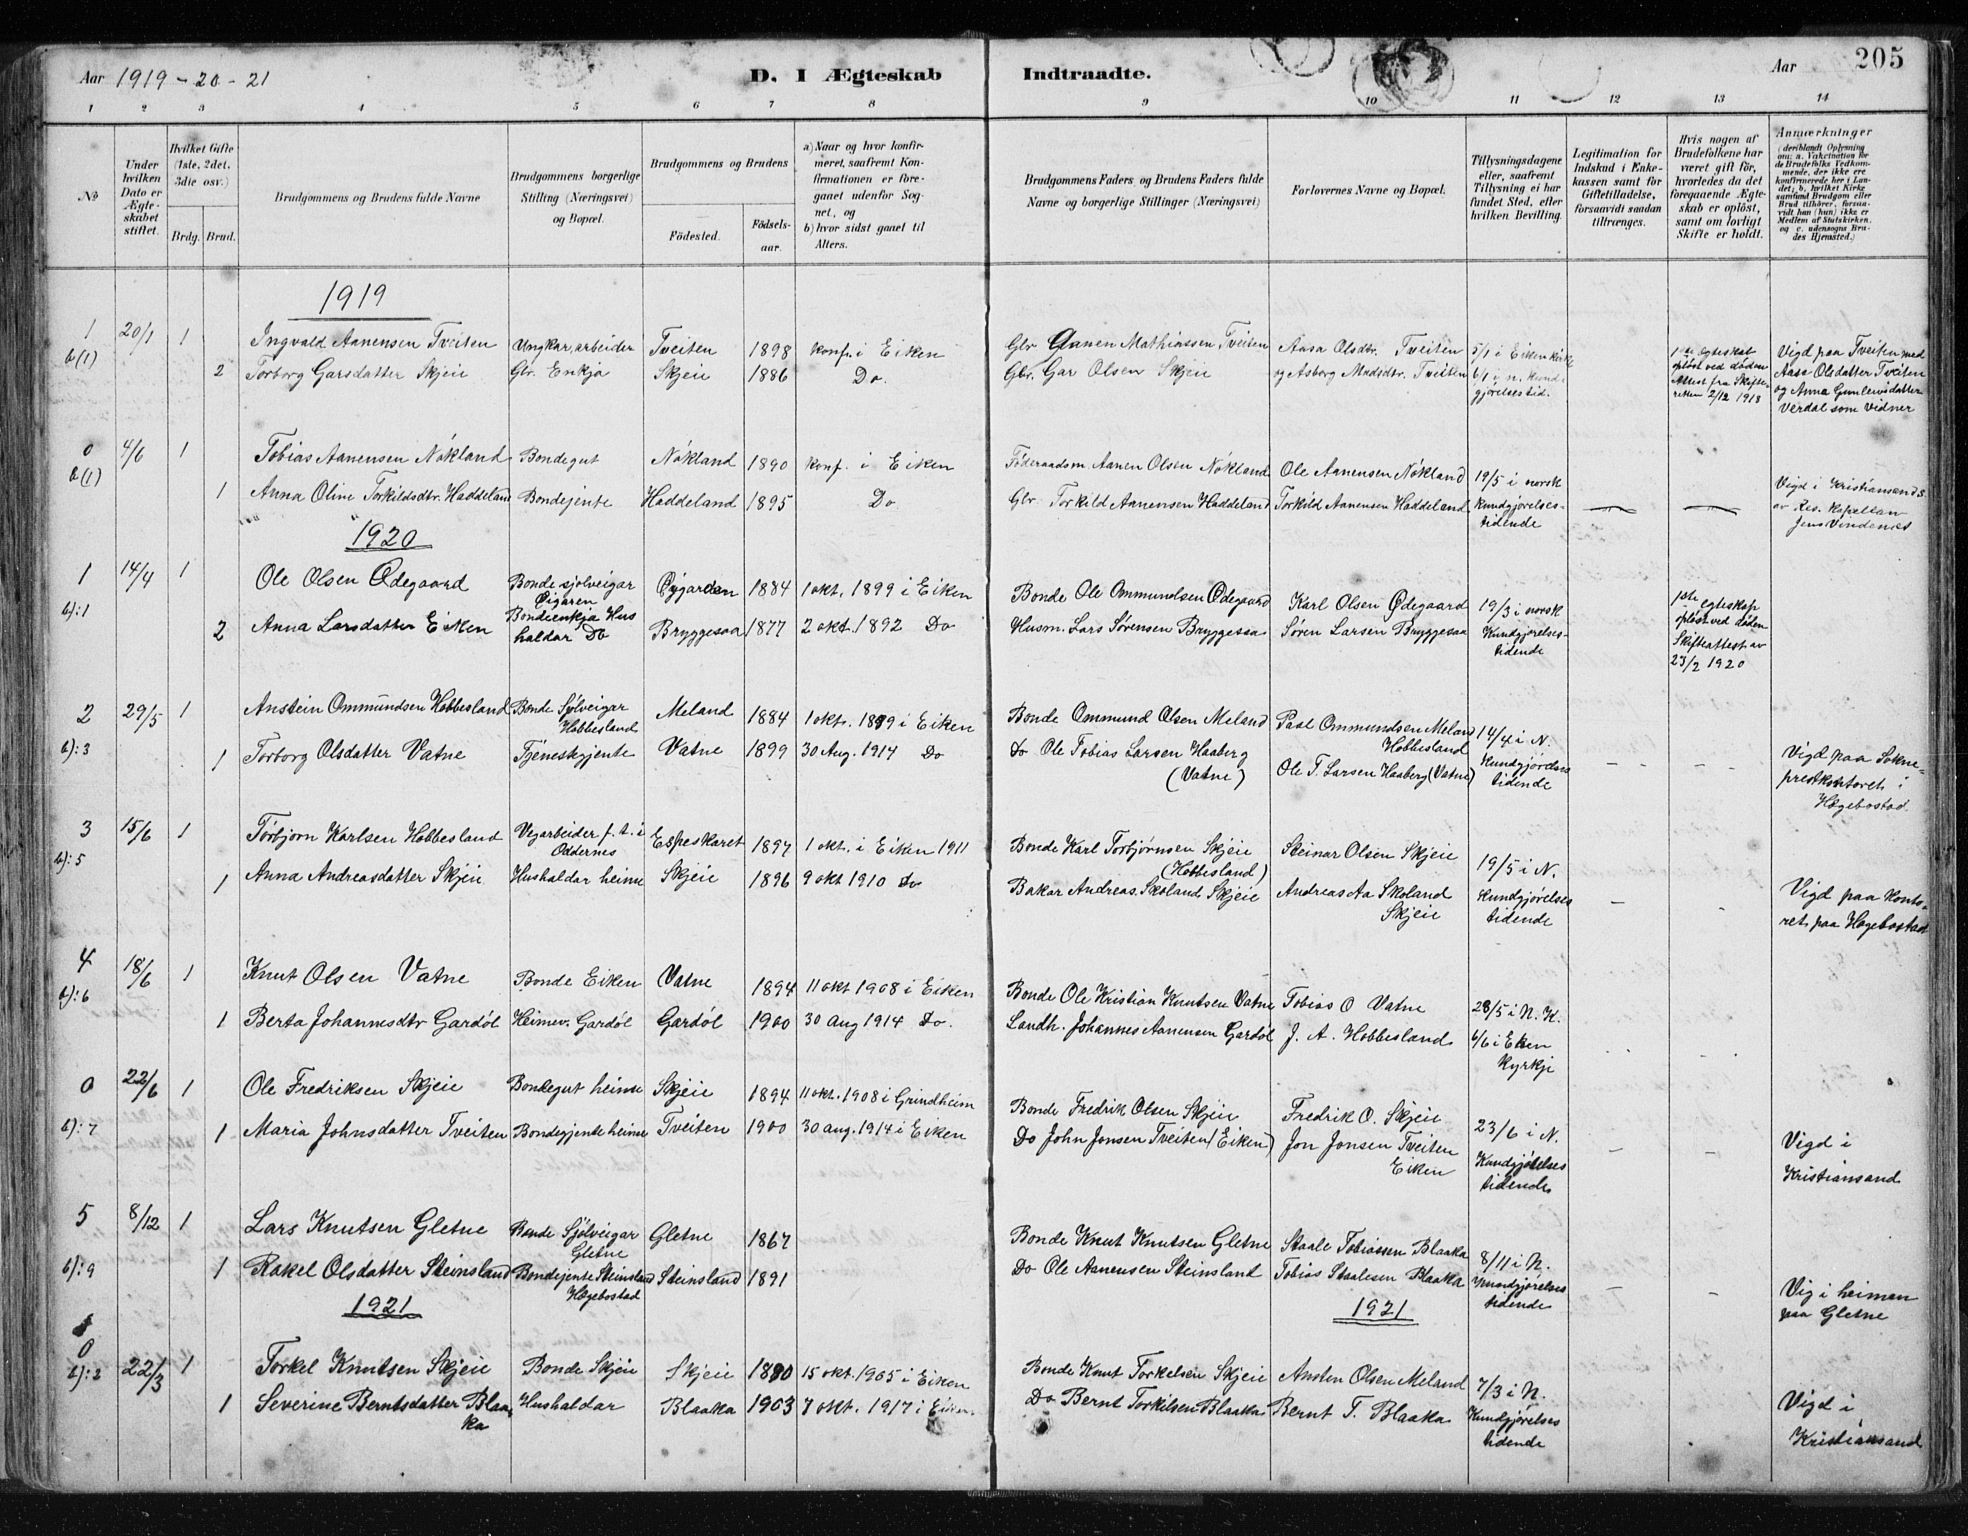 Aar 1919 - 20 - 21
D. I Ægteskab Indtraadte.
Aar 205
1 2 3 4 5 6 7 8 9 10 11 12 13 14
No
Under hvilken Dato er Ægteskabet stiftet.
Hvilket Gifte (1ste, 2det, 3die osv.)
Brdg. Brud.
Brudgommens og Brudens fulde Navne
Brudgommens borgerlige Stilling (Næringsvei) og Bopæl.
Brudgommens og Brudens
Fødested.
Fødselsaar.
a) Naar og hvor konfirmeret, saafremt Konfirmationen er foregaaet udenfor Sognet, og
b) hvor sidst gaaet til Alters.
Brudgommens Faders og Brudens Faders fulde Navne og borgerlige Stillinger (Næringsvei)
Forlovernes Navne og Bopæl.
Tillysningsdagene eller, saafremt Tillysning ei har fundet Sted, efter hvilken Bevilling.
Legitimation for Indskud i Enkekassen samt for Giftetilladelse, forsaavidt saadan tiltrænges.
Hvis nogen af Brudefolkene har været gift før, hvorledes da det foregaaende Ægteskab er opløst, samt om lovligt Skifte er holdt.
Anmærkninger (deriblandt Oplysning om: a. Vakcination for de Brudefolks Vedkommende, der ikke ere konfirmerede her i Landet; b. hvilket Kirkesamfund Brudgom eller Brud tilhører, forsaavidt han (hun) ikke er Medlem af Statskirken, og c. udensogns Brudes Hjemsted.)
1919
1 20/1 1 Ingvald Aanensen Tveiten Ungkar, arbeider Tveiten 1898 konf. i Eiken Gbr Aanen Mathiassen Tveiten Aasa Olsdtr. Tveiten 5/1 i Eiken kirke 1ste Ægteskab Vigd paa Tveiten med
b(1) 2 Torborg Garsdatter Skjeie Gbr. Enkja Skjeie 1886 Do. Gbr. Gar Olsen Skjeie og Asberg Madsdtr. Tveiten 6/1 i n. kundgjørelsestid. opløst ved døden Attest fra Skifteretten 2/12 1918 Aasa Olsdatter Tveiten og Anna Gunleivsdatter Verdal som vidner
0 4/6 1 Tobias Aanensen Nökland Bondegut Nökland 1890 konf. i Eiken Föderaadsm. Aanen Olsen Nökland Ole Aanensen Nökland 19/5 i norsk
b(1) 1 Anna Oline Torkildsdtr. Haddeland Bondejente Haddeland 1895 Do Gbr Torkild Aanensen Haddeland Torkild Aanensen Haddeland kundgjørelsestidende — — Vigd i Kristiansand av Res. kapellan Jens
1920
1 14/4 1 Ole Olsen Ødegaard Bonde sjølveigar Øigaren Øygarden 1884 1 okt. 1899 i Eiken Bonde Ole Ommundsen Ødegaard Karl Olsen Ødegaard 19/3 i norsk 1ste egteskap
b): 1 2 Anna Larsdatter Eiken Bondeenkja Hushaldar Do Bryggesaa 1877 2 okt. 1892 Do Husm. Lars Sørensen Bryggesaa Søren Larsen Bryggesaa Kundgjørelsestidende opløst ved døden Skifteattest av 23/2 1920
2 29/5 1 Anstein Ommundsen Hobbesland Bonde Sjølveigar Hobbesland Meland 1884 1 okt. 1899 i Eiken Bonde Ommund Olsen Meland Paal Ommundsen Meland Hobbesland 14/4 i N.
b): 3 1 Torborg Olsdatter Vatne Tjenestgjente Vatne 1899 30 Aug. 1914 Do Do Ole Tobias Larsen Haaberg (Vatne) Ole T. Larsen Haaberg (Vatne) Kundgjørelsestidende - - Vigd paa Sokneprestkontoret i Hægebostad
3 15/6 1 Torbjørn Karlsen Hobbesland Vegarbeider p. t. i Oddernes Espeskaret 1897 1 okt. i Eiken 1911 Bonde Karl Torbjørnsen Skjeie (Hobbesland) Steinar Olsen Skjeie 19/5 i N.
b): 5 1 Anna Andreasdatter Skjeie Hushaldar heime Skjeie 1896 9 okt 1910 Do Bakar Andreas Skoland Skjeie Andreas Aa Skoland Skjeie Kundgjørelsestidende - - Vigd paa kontoret paa Hægebostad
4 18/6 1 Knut Olsen Vatne Bonde Eiken Vatne 1894 11 okt 1908 i Eiken Bonde Ole Kristian Knutsen Vatne Tobias O Vatne 28/5 i N. K.
b): 6 1 Berta Johannesdtr Gardøl Heimev. Gardøl Gardøl 1900 30 Aug 1914 Do. Landh. Johannes Aanensen Gardøl J. A. Hobbesland 6/6 i Eken kyrkje
0 22/6 1 Ole Fredriksen Skjeie Bondegut heime Skjeie 1894 11 okt. 1908 i Grindheim Bonde Fredrik Olsen Skjeie Fredrik O. Skjeie 23/6 i N.
b): 7 1 Maria Johnsdatter Tveiten Bondegjente heime Tveiten 1900 30 aug. 1914 i Eiken Do John Jonsen Tveiten (Eiken) Jon Jonsen Tveiten Eiken Kundgjørelsestidende - - Vigd i Kristiansand
5 8/12 1 Lars Knutsen Gletne Bonde Sjølveigar Gletne Gletne 1867 Bonde Knut Knutsen Gletne Staale Tobiassen Blaaka 8/11 i N.
b): 9 1 Rakel Olsdatter Steinsland Bondejente Steinsland Hægebostad Steinsland 1891 Do Ole Aanensen Steinsland Tobias Staalesen Blaaka Kundgjørelsestidende - - Vig i heimen paa Gletne
1921 1921
0 22/3 1 Torkel Knutsen Skjeie Bonde Skjeie Skjeie 1890 15 okt. 1905 i Eiken Bonde Knut Torkelsen Skjeie Ansten Olsen Meland 7/3 i N.
b): 2 1 Severine Berntsdatter Blaaka Hushaldar Blaaka 1903 7 okt. 1917 i Eiken. Do Bernt Torkilsen Blaaka Bernt T. Blaaka Kundgjørelsestidende Vigd i Kristiansand